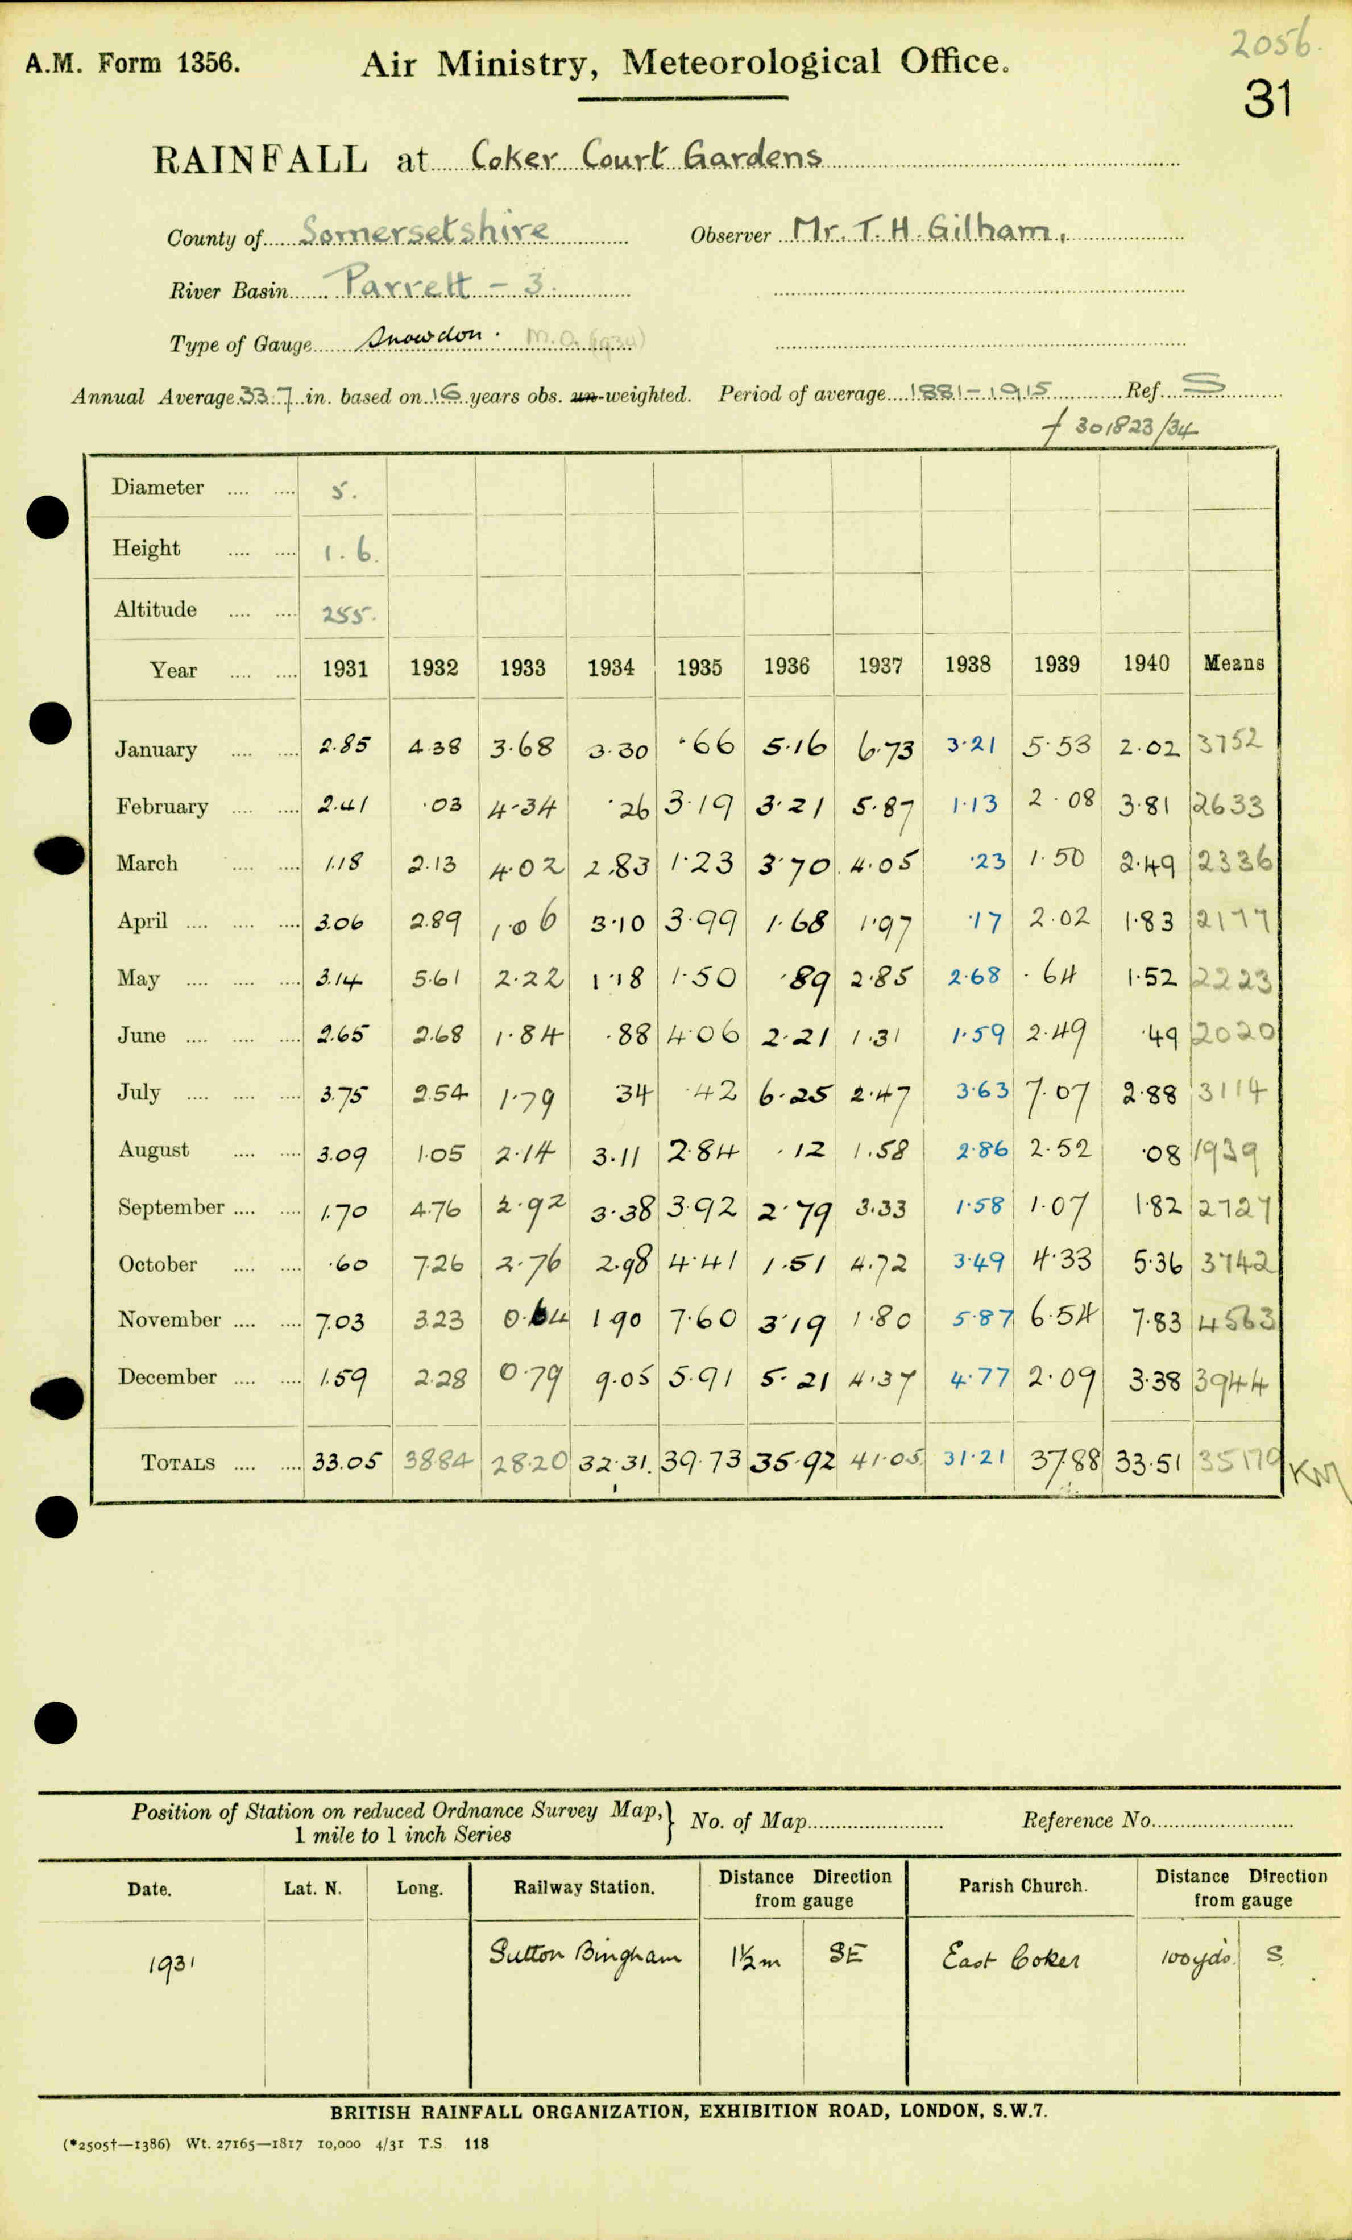 2056.
A.M. Form 1356. Air Ministry, Meteorological Office.
31
RAINFALL at Coker Court Gardens
County of Somersetshire Observer Mr. T. H. Gilham.
River Basin Parrett - 3.
Type of Gauge Snowdon. M.O. (1934)
Annual Average 33.7 in. based on 16 years obs. un-weighted. Period of average 1881-1915 Ref. S
f 301823/34
Diameter .... .... 5.
Height .... .... 1.6.
Altitude .... .... 255.
Year .... .... 1931 1932 1933 1934 1935 1936 1937 1938 1939 1940 Means
January .... .... 2.85 4.38 3.68 3.30 .66 5.16 6.73 3.21 5.53 2.02 3752
February .... .... 2.41 .03 4.34 .26 3.19 3.21 5.87 1.13 2.08 3.81 2633
March .... .... 1.18 2.13 4.02 2.83 1.23 3.70 4.05 .23 1.50 2.49 2336
April .... .... .... 3.06 2.89 1.06 3.10 3.99 1.68 1.97 .17 2.02 1.83 2177
May .... .... .... 3.14 5.61 2.22 1.18 1.50 .89 2.85 2.68 .64 1.52 2223
June .... .... .... 2.65 2.68 1.84 .88 4.06 2.21 1.31 1.59 2.49 .49 2020
July .... .... .... 3.75 2.54 1.79 .34 .42 6.25 2.47 3.63 7.07 2.88 3114
August .... .... 3.09 1.05 2.14 3.11 2.84 .12 1.58 2.86 2.52 .08 1939
September .... .... 1.70 4.76 2.92 3.38 3.92 2.79 3.33 1.58 1.07 1.82 2727
October .... .... .60 7.26 2.76 2.98 4.41 1.51 4.72 3.49 4.33 5.36 3742
November .... .... 7.03 3.23 0.64 1.90 7.60 3.19 1.80 5.87 6.54 7.83 4563
December .... .... 1.59 2.28 0.79 9.05 5.91 5.21 4.37 4.77 2.09 3.38 3944
TOTALS .... .... 33.05 38.84 28.20 32.31. 39.73 35.92 41.05 31.21 37.88 33.51 35170 KM
Position of Station on reduced Ordnance Survey Map, } No. of Map Reference No.
1 mile to 1 inch Series
Date. Lat. N. Long. Railway Station. Distance Direction from gauge Parish Church. Distance Direction from gauge
1931 Sutton Bingham 1½m SE East Coker 100yds. S.
BRITISH RAINFALL ORGANIZATION, EXHIBITION ROAD, LONDON, S.W.7.
(*2505†—1386) Wt. 27165—1817 10,000 4/31 T.S. 118